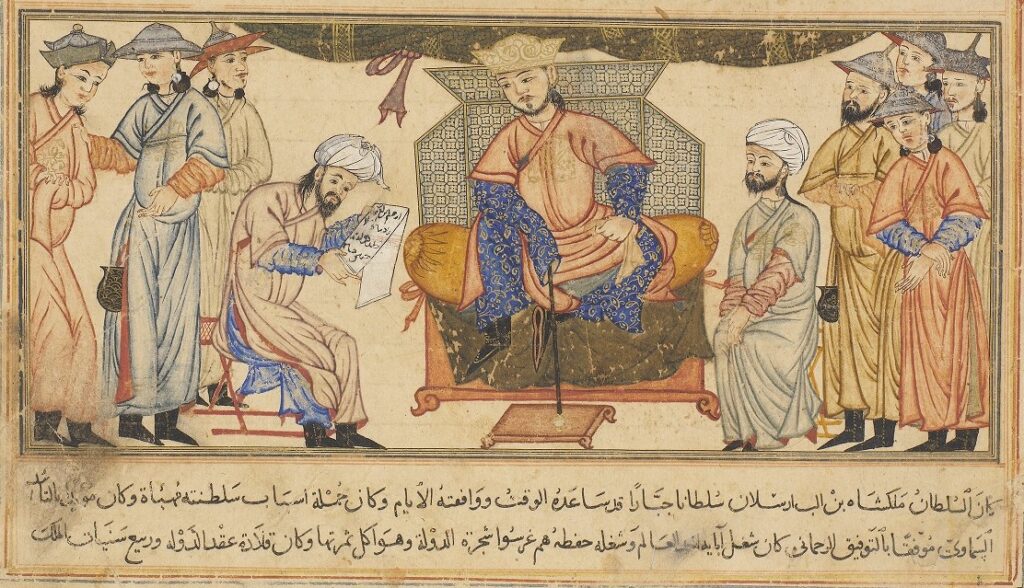 كان السلطان ملكشاه بن الب ارسلان سلطانا جبارا قد ساعده الوقت ووافقته الايام وكان جملة اسباب سلطنته مهياة وكان
السماوي موفقا بالتوفيق الرحماني كان شغل آبايه العالم وشغله حفظه هم غرسوا شجرة الدولة وهو اكل ثمرتها وكان قلادة عقد الدولة وربيع سنيات الملك